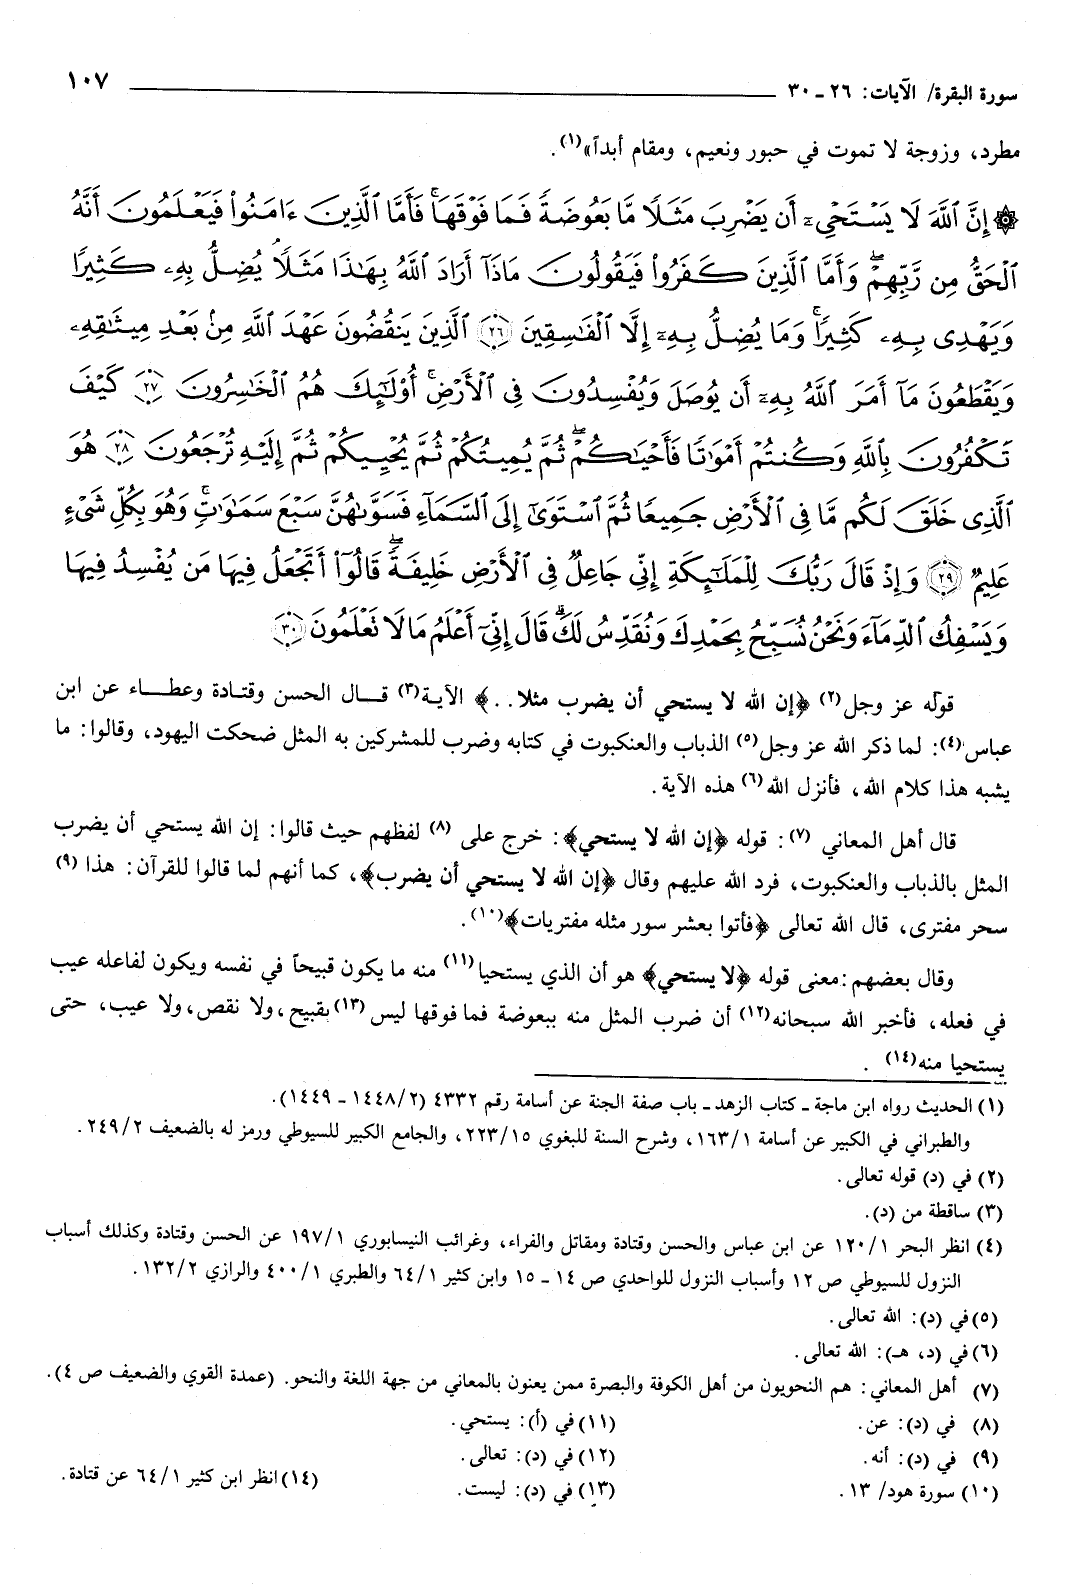 سورة البقرة/ الآيات: ٢٦ ـ ٣٠ ١٠٧
مطرد، وزوجة لا تموت في حبور ونعيم، ومقام أبداً»(١).
۞ إِنَّ ٱللَّهَ لَا يَسْتَحْىِۦٓ أَن يَضْرِبَ مَثَلًا مَّا بَعُوضَةً فَمَا فَوْقَهَا ۚ فَأَمَّا ٱلَّذِينَ ءَامَنُوا۟ فَيَعْلَمُونَ أَنَّهُ
ٱلْحَقُّ مِن رَّبِّهِمْ ۖ وَأَمَّا ٱلَّذِينَ كَفَرُوا۟ فَيَقُولُونَ مَاذَآ أَرَادَ ٱللَّهُ بِهَٰذَا مَثَلًا ۘ يُضِلُّ بِهِۦ كَثِيرًا
وَيَهْدِى بِهِۦ كَثِيرًا ۚ وَمَا يُضِلُّ بِهِۦٓ إِلَّا ٱلْفَٰسِقِينَ ﴿٢٦﴾ ٱلَّذِينَ يَنقُضُونَ عَهْدَ ٱللَّهِ مِنۢ بَعْدِ مِيثَٰقِهِۦ
وَيَقْطَعُونَ مَآ أَمَرَ ٱللَّهُ بِهِۦٓ أَن يُوصَلَ وَيُفْسِدُونَ فِى ٱلْأَرْضِ ۚ أُو۟لَٰٓئِكَ هُمُ ٱلْخَٰسِرُونَ ﴿٢٧﴾ كَيْفَ
تَكْفُرُونَ بِٱللَّهِ وَكُنتُمْ أَمْوَٰتًا فَأَحْيَٰكُمْ ۖ ثُمَّ يُمِيتُكُمْ ثُمَّ يُحْيِيكُمْ ثُمَّ إِلَيْهِ تُرْجَعُونَ ﴿٢٨﴾ هُوَ
ٱلَّذِى خَلَقَ لَكُم مَّا فِى ٱلْأَرْضِ جَمِيعًا ثُمَّ ٱسْتَوَىٰٓ إِلَى ٱلسَّمَآءِ فَسَوَّىٰهُنَّ سَبْعَ سَمَٰوَٰتٍ ۚ وَهُوَ بِكُلِّ شَىْءٍ
عَلِيمٌ ﴿٢٩﴾ وَإِذْ قَالَ رَبُّكَ لِلْمَلَٰٓئِكَةِ إِنِّى جَاعِلٌ فِى ٱلْأَرْضِ خَلِيفَةً ۖ قَالُوٓا۟ أَتَجْعَلُ فِيهَا مَن يُفْسِدُ فِيهَا
وَيَسْفِكُ ٱلدِّمَآءَ وَنَحْنُ نُسَبِّحُ بِحَمْدِكَ وَنُقَدِّسُ لَكَ ۖ قَالَ إِنِّىٓ أَعْلَمُ مَا لَا تَعْلَمُونَ ﴿٣٠﴾
قوله عز وجل(٢) ﴿إن الله لا يستحي أن يضرب مثلا..﴾ الآية(٣) قال الحسن وقتادة وعطاء عن ابن
عباس(٤): لما ذكر الله عز وجل(٥) الذباب والعنكبوت في كتابه وضرب للمشركين به المثل ضحكت اليهود، وقالوا: ما
يشبه هذا كلام الله، فأنزل الله(٦) هذه الآية.
قال أهل المعاني (٧): قوله ﴿إن الله لا يستحي﴾: خرج على (٨) لفظهم حيث قالوا: إن الله يستحي أن يضرب
المثل بالذباب والعنكبوت، فرد الله عليهم وقال ﴿إن الله لا يستحي أن يضرب﴾، كما أنهم لما قالوا للقرآن: هذا (٩)
سحر مفترى، قال الله تعالى ﴿فأتوا بعشر سور مثله مفتريات﴾(١٠).
وقال بعضهم: معنى قوله ﴿لا يستحي﴾ هو أن الذي يستحيا(١١) منه ما يكون قبيحاً في نفسه ويكون لفاعله عيب
في فعله، فأخبر الله سبحانه(١٢) أن ضرب المثل منه ببعوضة فما فوقها ليس (١٣) بقبيح، ولا نقص، ولا عيب، حتى
يستحيا منه(١٤) .
(١) الحديث رواه ابن ماجة ـ كتاب الزهد ـ باب صفة الجنة عن أسامة رقم ٤٣٣٢ (١٤٤٨/٢ ـ ١٤٤٩).
والطبراني في الكبير عن أسامة ١٦٣/١، وشرح السنة للبغوي ٢٢٣/١٥، والجامع الكبير للسيوطي ورمز له بالضعيف ٢٤٩/٢.
(٢) في (د) قوله تعالى.
(٣) ساقطة من (د).
(٤) انظر البحر ١٢٠/١ عن ابن عباس والحسن وقتادة ومقاتل والفراء، وغرائب النيسابوري ١٩٧/١ عن الحسن وقتادة وكذلك أسباب
النزول للسيوطي ص ١٢ وأسباب النزول للواحدي ص ١٤ ـ ١٥ وابن كثير ٦٤/١ والطبري ٤٠٠/١ والرازي ١٣٢/٢.
(٥) في (د): الله تعالى.
(٦) في (د، هـ): الله تعالى.
(٧) أهل المعاني: هم النحويون من أهل الكوفة والبصرة ممن يعنون بالمعاني من جهة اللغة والنحو. (عمدة القوي والضعيف ص ٤).
(٨) في (د): عن. (١١) في (أ): يستحي.
(٩) في (د): أنه. (١٢) في (د): تعالى.
(١٠) سورة هود/ ١٣. (١٣) في (د): ليست. (١٤) انظر ابن كثير ٦٤/١ عن قتادة.